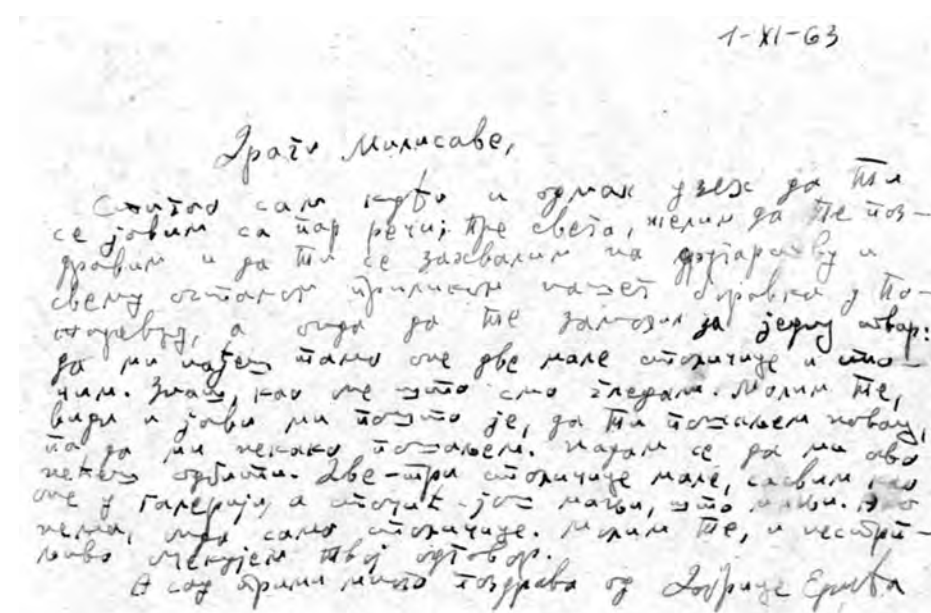 1-XI-63
Драги Милисаве,
Стигао сам кући и одмах узех да ти
се јавим са пар речи; пре свега, желим да те поз-
дравим и да ти се захвалим на другарству и
свему осталом приликом нашег боравка у По-
жаревцу, а онда да те замолим за једну ствар:
да ми нађеш тамо оне две мале столичице и сто-
чић. Знаш, као оне што смо гледали. Молим те,
види и јави ми пошто је, да ти пошаљем новац,
па да ми некако пошаљеш. Надам се да ми ово
нећеш одбити. Две-три столичице мале, сасвим као
оне у Галерији, а сточић још мањи, што мањи. Ако
нема, онда само столичице. Молим те, и нестрп-
љиво очекујем твој одговор.
А сад прими много поздрава од Добрице Ерића